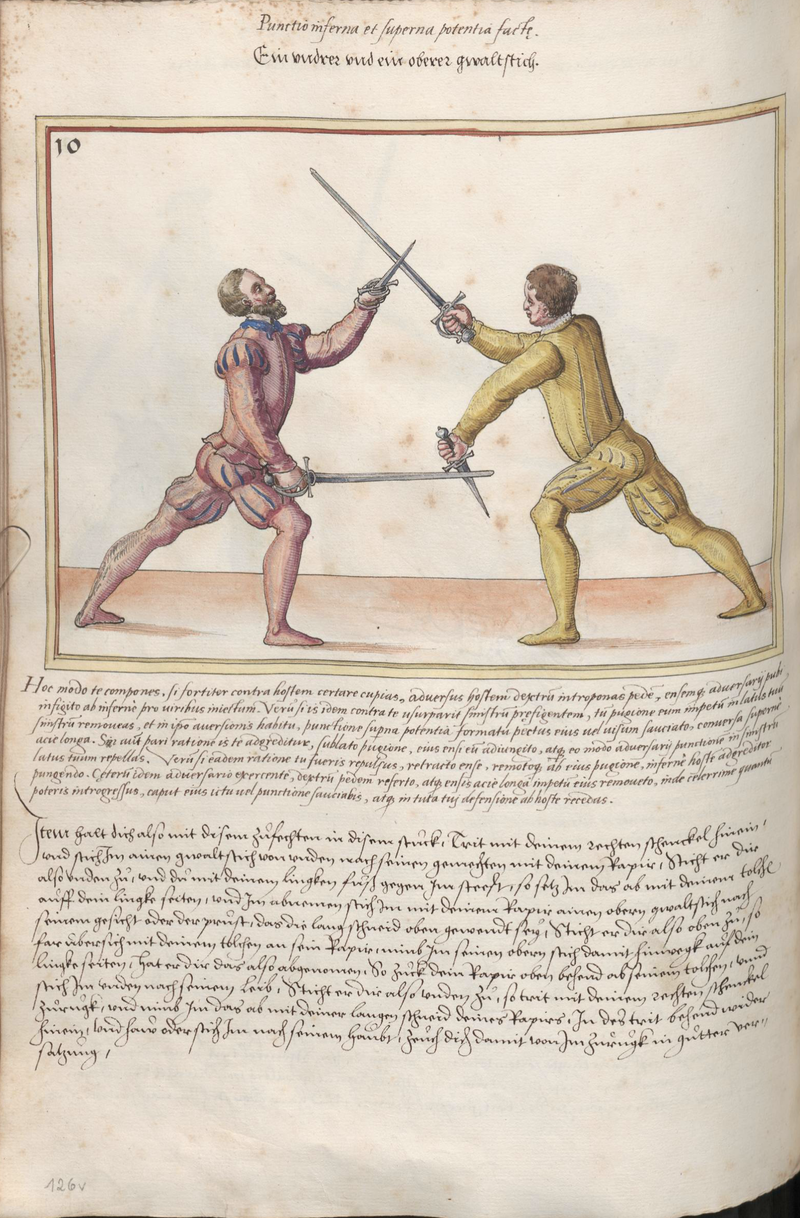 Punctio inferna et superna potentia factę.
Ein vndrer vnd ein oberer gwaltstich.
10
Hoc modo te compones, si fortiter contra hostem certare cupias, adversus hostem dextrũ introponas pedẽ, ensemq; adversarij pubi
infigito ab infernè pro viribus iniectum. Verũ si is idem contra te usurparit sinistrũ prefigentem, tũ pugione eum impetũ in latus tuũ
sinistrũ removeas, et in ipso aversionis habitu, punctione supna potentia formatũ pectus eius vel visum sauciato, conversa supernè
acie longa. Sin aũt pari ratione is te adgreditur, sublato pugione, eius ensi eũ adiungito, atq; eo modo adversarij punctione in sinistrũ
latus tuum repellas. Verũ si eadem ratione tu fueris repulsus, retracto ense, remotoq; ab eius pugione, infernè hostẽ adgreditor
pungendo. Cęterũ idem adversario exercente, dextrũ pedem referto, atq; ensis acie longa impetũ eius removeto, inde celerrimè quantũ
poteris introgressus, caput eius ictu vel punctione sauciabis, atq; in tuta tuj defensione ab hoste recedas.
Item halt dich also mit disem zůfechten in disem stuckh, Trit mit deinem rechten schenckel hinein,
vnd stich Im ainen gwaltstich von vnden nach seinen gemechten mit deinem Rapir, Sticht er dir
also vnden zů, vnd du mit deinem lingken fůsß gegen Im steest, so setz Im das ab mit deinem tolchẽ
auff dein lingke seiten, vnd Im abnemen stich Im mit deinem Rapir ainen obern gwaltstich nach
seinem gesicht oder der prust, das die lang schneid oben gewendt seẏ, Sticht er dir also oben zů, so
far übersich mit deinem tolchen an sein Rapir, nimb Im seinen obern stich damit hinwegk auf dein
lingke seiten, Hat er dir das also abgenomen, So zuckh dein Rapir oben behend ab seinem tolchen, vnnd
stich Im vnden nach seinem leib, Sticht er dir also vnden zů, so trit mit deinem rechten schenckel
zurugk, vnd nimb Im das ab mit deiner langen schneid deines Rapirs, In des trit behend wider
hinein, vnd haw oder stich Im nach seinem haubt, zeuch dich damit von Im zurugk in gůtter ver-
satzung,
126v